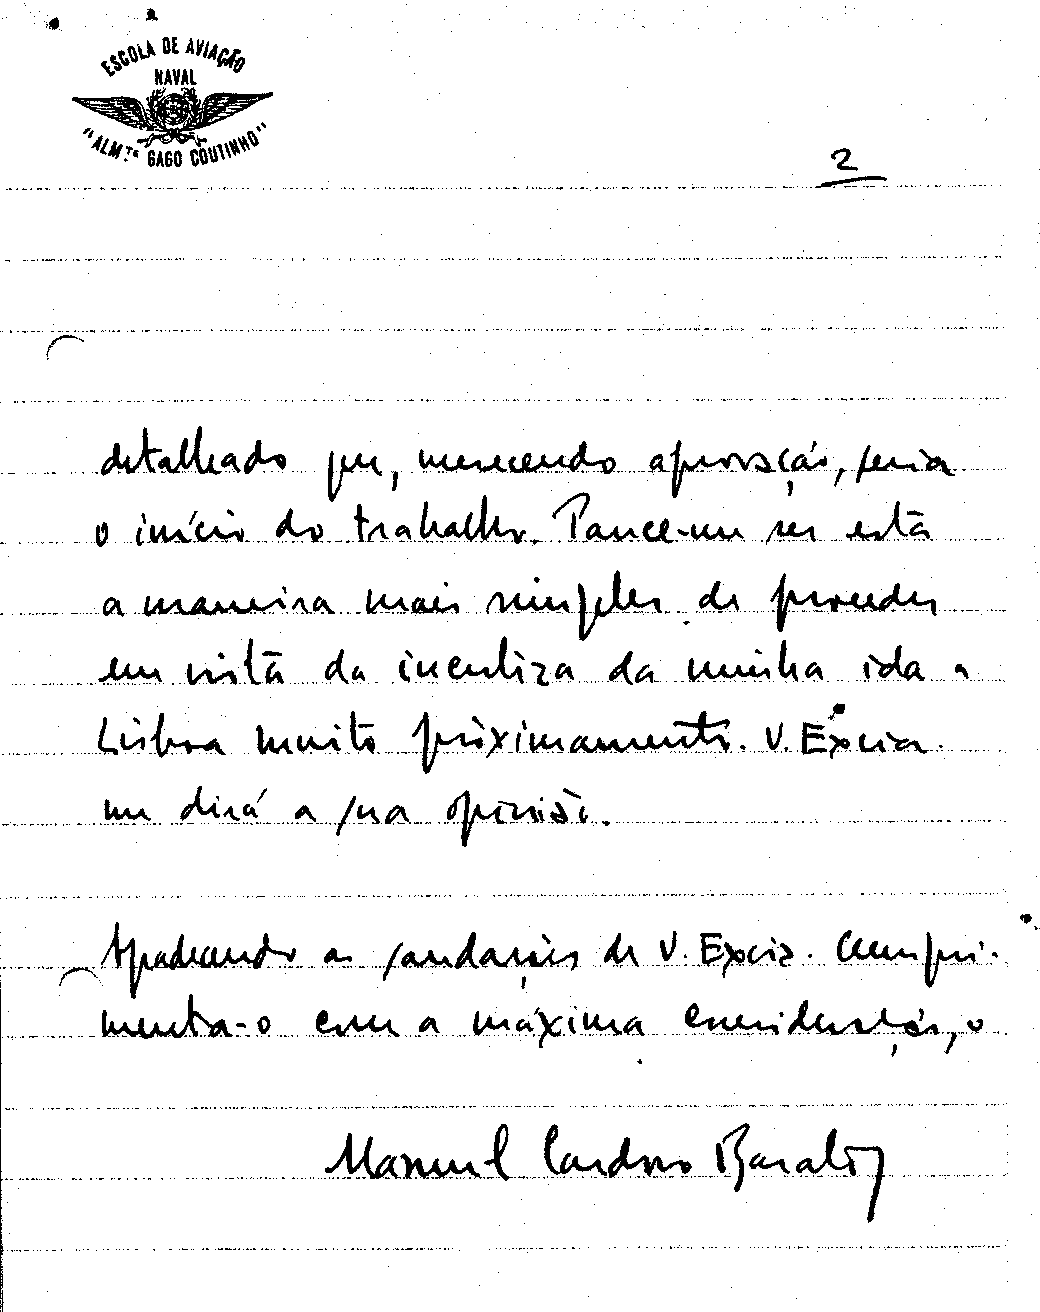 ESCOLA DE AVIAÇÃO
NAVAL
"ALM.TE GAGO COUTINHO"
2
detalhado que, merecendo aprovação, seria
o início do trabalho. Parece-me ser esta
a maneira mais simples de proceder
em vista da incerteza da minha ida a
Lisboa muito pròximamente. V. Excia.
me dirá a sua opinião.
Agradecendo as saudações de V. Excia. Cumpri-
menta-o com a máxima consideração, o
Manuel Cardoso